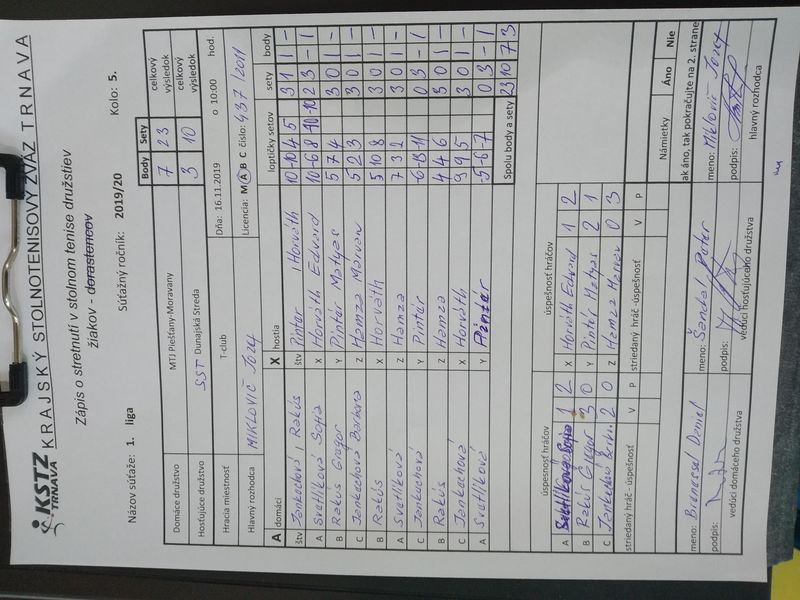 KSTZ TRNAVA KRAJSKÝ STOLNOTENISOVÝ ZVÄZ TRNAVA
Zápis o stretnutí v stolnom tenise družstiev
žiakov - dorastencov
Názov súťaže: 1. liga Súťažný ročník: 2019/20 Kolo: 5.
Body Sety
Domáce družstvo MTJ Piešťany-Moravany 7 23 celkový výsledok
Hosťujúce družstvo SST Dunajská Streda 3 10 celkový výsledok
Hracia miestnosť T-club Dňa: 16.11.2019 o 10:00 hod.
Hlavný rozhodca MIKLOVIČ Jozef Licencia: M A B C číslo: 437/2011
A domáci X hostia loptičky setov sety body
štv Jankechová, Rakús štv Pintér, Horváth 10 -10 4 5 3 1 1 -
A Svetlíková Sofia X Horváth Edvard 2 3 - 1
B Rakús Gregor Y Pintér Matyas 5 7 4 3 0 1 -
C Jankechová Barbora Z Hamza Marvan 5 2 3 3 0 1 -
B Rakús X Horváth 5 10 8 3 0 1 -
A Svetlíková Z Hamza 7 3 2 3 0 1 -
C Jankechová Y Pintér -6 -13 -11 0 3 - 1
B Rakús Z Hamza 4 4 6 3 0 1 -
C Jankechová X Horváth 9 9 5 3 0 1 -
A Svetlíková Y Pintér -5 -6 -7 0 3 - 1
Spolu body a sety 23 10 7 3
úspešnosť hráčov úspešnosť hráčov
A Svetlíková Sofia 1 2 X Horváth Edvard 1 2
B Rakús Gregor 3 0 Y Pintér Matyas 2 1
C 2 0 Z Hamza Marvan 0 3
striedaný hráč - úspešnosť V P striedaný hráč -úspešnosť V P
Námietky Áno Nie
ak áno, tak pokračujte na 2. strane
meno: Daniel meno: Šándal Peter meno: Miklovič Jozef
podpis: podpis: podpis:
vedúci domáceho družstva vedúci hosťujúceho družstva hlavný rozhodca